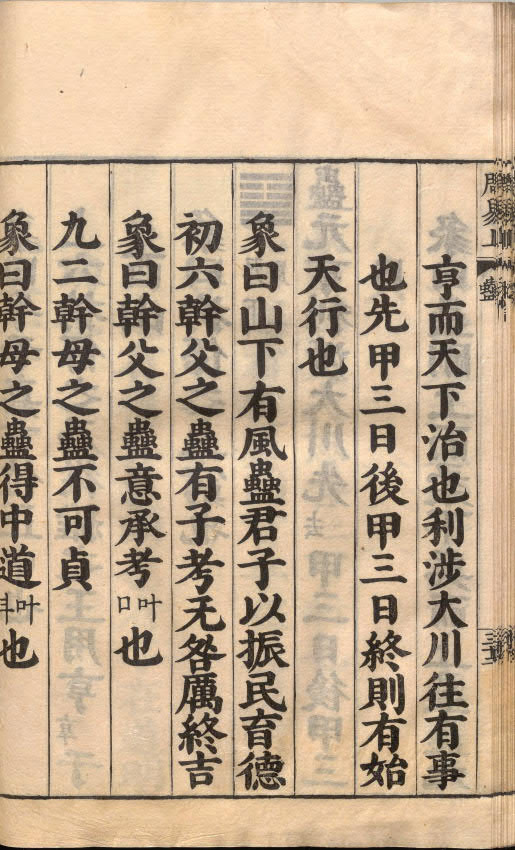 亨而天下治也利涉大川往有事
也先甲三日後甲三日終則有始
天行也
象曰山下有風蠱君子以振民育德
初六幹父之蠱有子考无咎厲終吉
象曰幹父之蠱意承考叶口也
九二幹母之蠱不可貞
象曰幹母之蠱得中道叶也